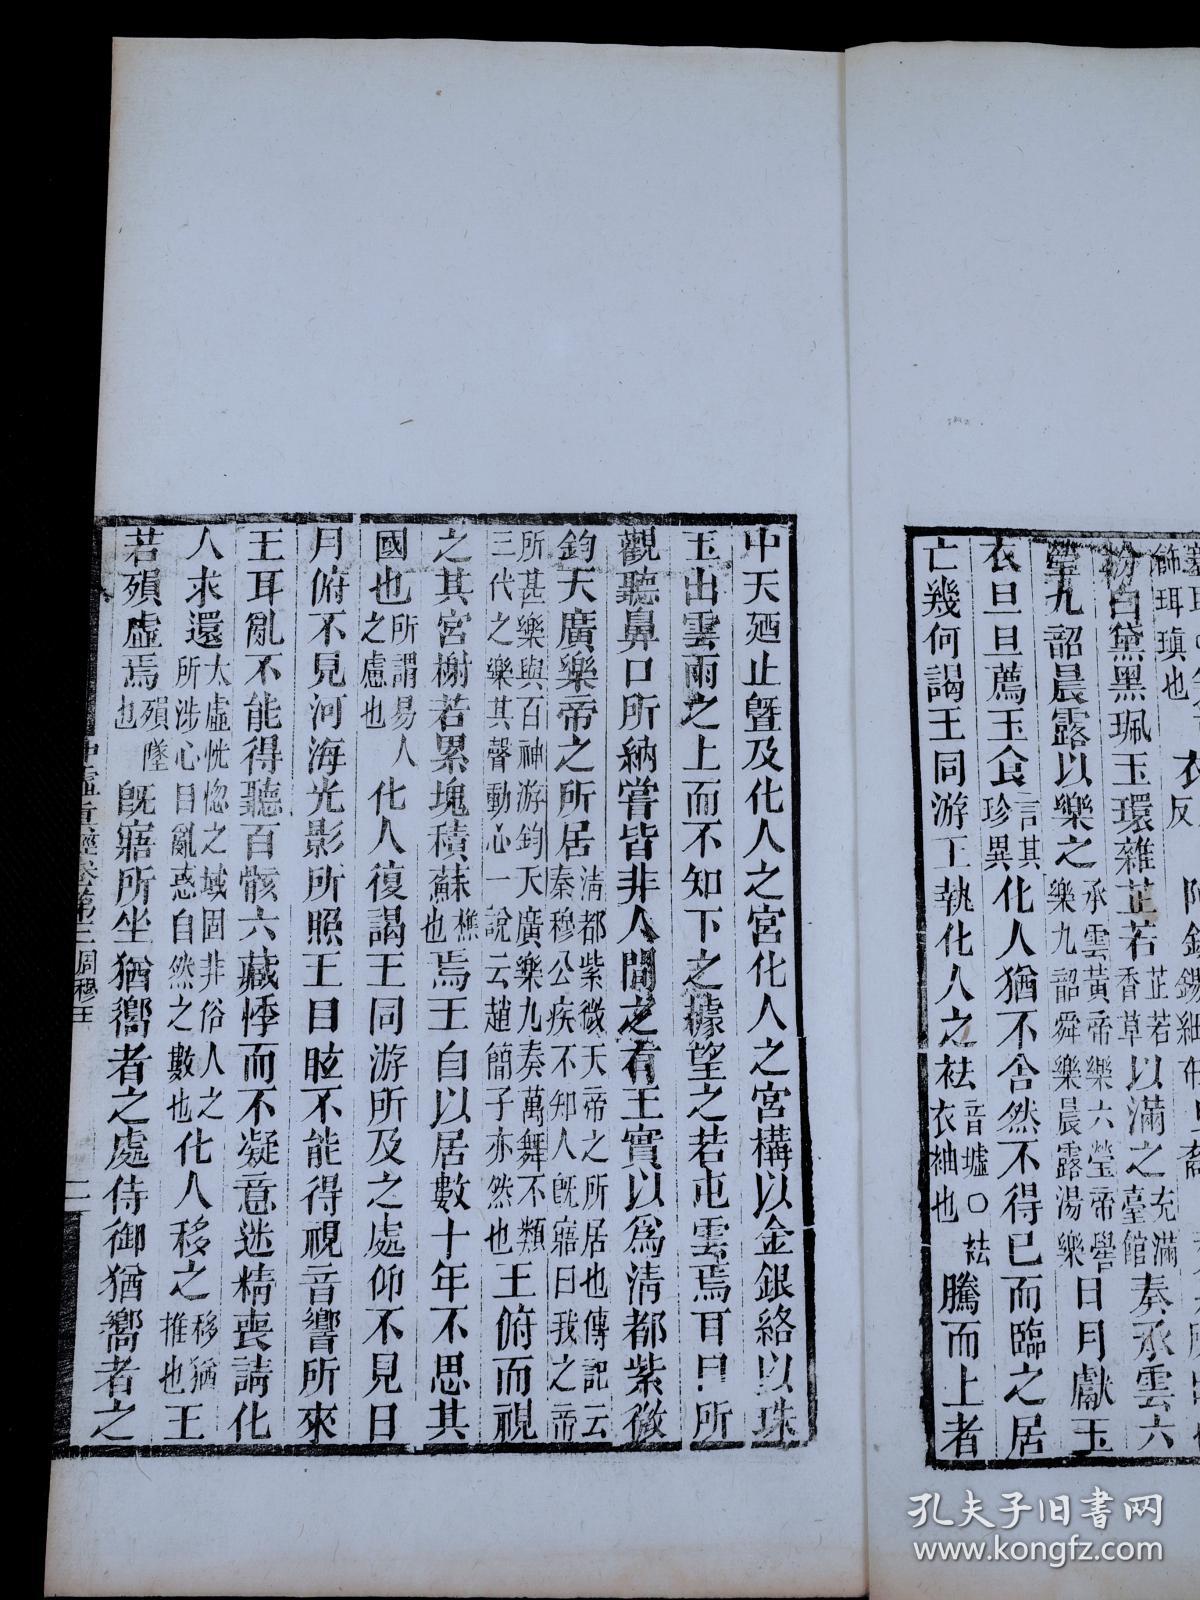 飾珥瑱也衣
粉白黛黑珮玉環雜芷若芷若香草以滿之充滿臺館奏承雲六
瑩九韶晨露以樂之承雲黃帝樂六瑩帝嚳樂九韶舜樂晨露湯樂日月獻玉
衣旦旦薦玉食言其珍異化人猶不舍然不得已而臨之居
亡幾何謁王同游王執化人之袪音墟○袪衣袖也騰而上者
中天廼止曁及化人之宮化人之宮構以金銀絡以珠
玉出雲雨之上而不知下之據望之若屯雲焉耳目所
觀聽鼻口所納嘗皆非人間之有王實以為清都紫微
鈞天廣樂帝之所居清都紫微天帝之所居也傳記云秦穆公疾不知人旣寤曰我之帝
所甚樂與百神游鈞天廣樂九奏萬舞不類三代之樂其聲動心一說云趙簡子亦然也王俯而視
之其宮榭若累塊積蘇樵也焉王自以居數十年不思其
國也所謂易人之慮也化人復謁王同游所及之處仰不見日
月俯不見河海光影所照王目眩不能得視音響所來
王耳亂不能得聽百骸六藏悸而不凝意迷精喪請化
人求還太虛恍惚之域固非俗人之所涉心目亂惑自然之數也化人移之移猶推也王
若殞虛焉殞墜也旣寤所坐猶嚮者之處侍御猶嚮者之
經卷第三周穆王 二
孔夫子旧书网
www.kongfz.com